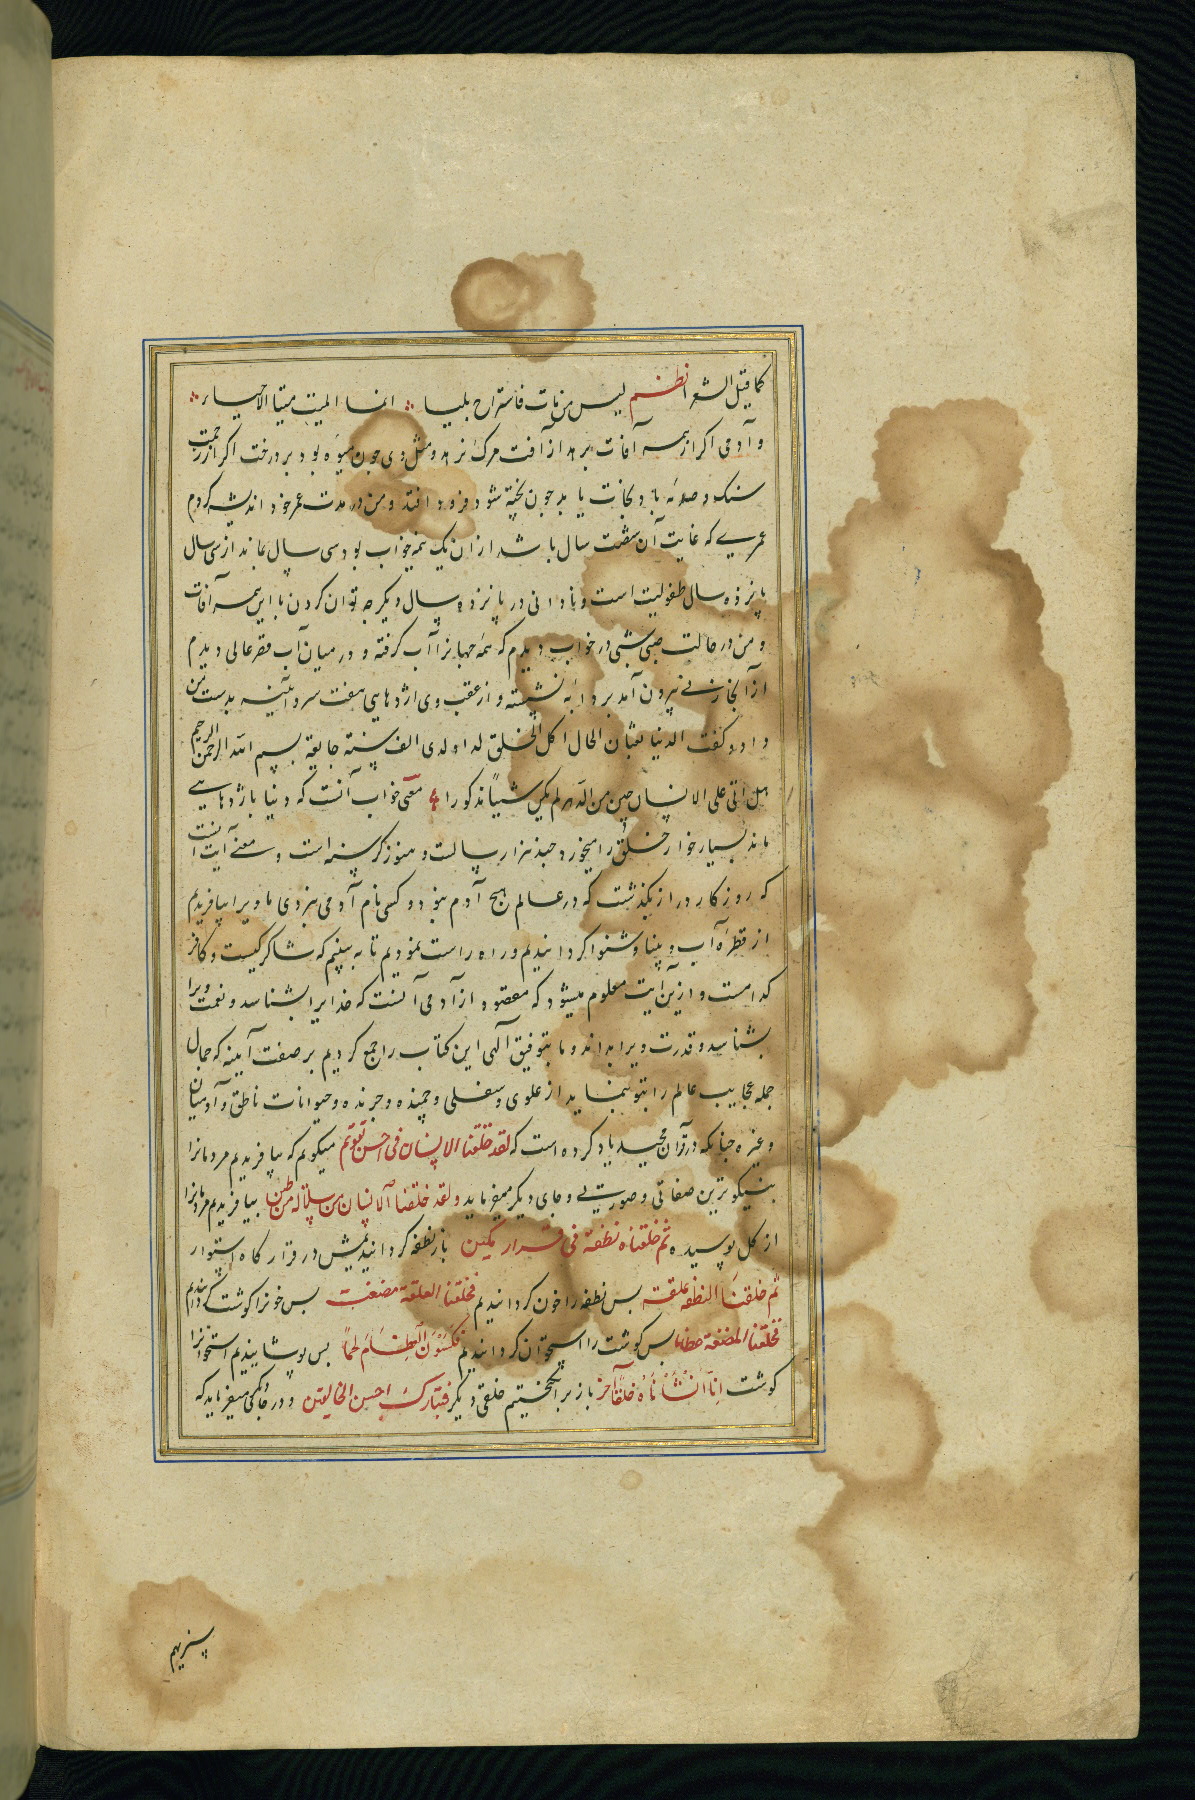 کما قیل الشعر نظم لیس من مات فاستراح بلیسا انما المیت میتا الاحیاء
و آدمی اگر از همه آفات برهد از آفت مرگ نرهد و مثل وی چون میوه بود بر درخت اگر از زحمت
سنک و صدمه باد نجات یابد چون پخته شود فرود افتد و من در مدت عمر خود اندیشه کردم
عمریی که غایت آن شصت سال باشد از ان یک نیمه خواب بود سی سال بماند از سی سال
پانزده سال طفولیت است و نادانی در پانزده سال دیکر چه توان کردن با این همه آفات
و من در حالت صبی شبی در خواب دیدم که همه جهانرا آب کرفته و در میان آب قصر عالی دیدم
از آنجا زنی بیرون آمد بر دابه نشسته و از عقب وی اژدهایی هفت سر و آینه بدست من
داد و کفت الدنیا ثعبان الحال اکل الخلق له اولدی الف سنة جایعة بسم الله الرحمن الرحیم
هل اتی علی الانسان حین من الدهر لم یکن شییًا مذکورا معنی خواب آنست که دنیا باژدهایی
ماند بسیار خوار خلق را میخورد چند هزار سالست و هنوز کرسنه است و معنی آیت انست
که روزکار دراز بکذشت که در عالم هیچ آدم نبود و کسی نام آدمی نبردی ما ویرا بیافریدیم
از قطره آب و بینا و شنوا کردانیدیم و راه راست نمودیم تا به بینیم که شاکر کیست و کافر
کدامست و ازین آیت معلوم میشود که مقصود از آدمی آنست که خدایرا بشناسد و نعمت ویرا
بشناسد و قدرت ویرا بداند و ما بتوفیق الهی این کتاب را جمع کردیم بر صفت آیینه که جمال
جمله عجایب عالم را بتو بنماید از علوی و سفلی و چمنده و چرنده و حیوانات ناطق و آدمیان
و غیره چنانکه در قرآن مجید یاد کرده است که لقد خلقنا الانسان فی احسن تقویم میکویم که بیافریدیم مردمانرا
بنیکوترین صفاتی و صورتی و جای دیکر میفرماید و لقد خلقنا الانسان من سلالة من طین بیافریدیم مردمانرا
از کل پوسیده ثم خلقناه نطفة فی قرار مکین باز نطفه کردانیدیمش در قرار کاه استوار
ثم خلقنا النطفه علقة پس نطفه را خون کردانیدیم فخلقنا العلقة مضغة پس خونرا کوشت کردانیدیم
فخلقنا المضغة عظاما پس کوشت را استخوان کردانیدیم فکسون العظام لحمًا پس پوشانیدیم استخوانرا
کوشت انا انشأناه خلقًا آخر باز برانکیختیم خلقی دیکر فتبارک احسن الخالقین و در جایکی میفرماید که
سنریهم